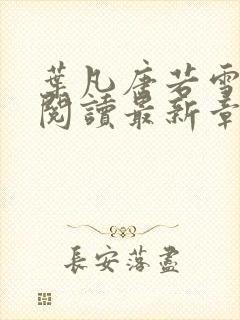 葉凡唐若雪
閱讀最新章
長安落盡